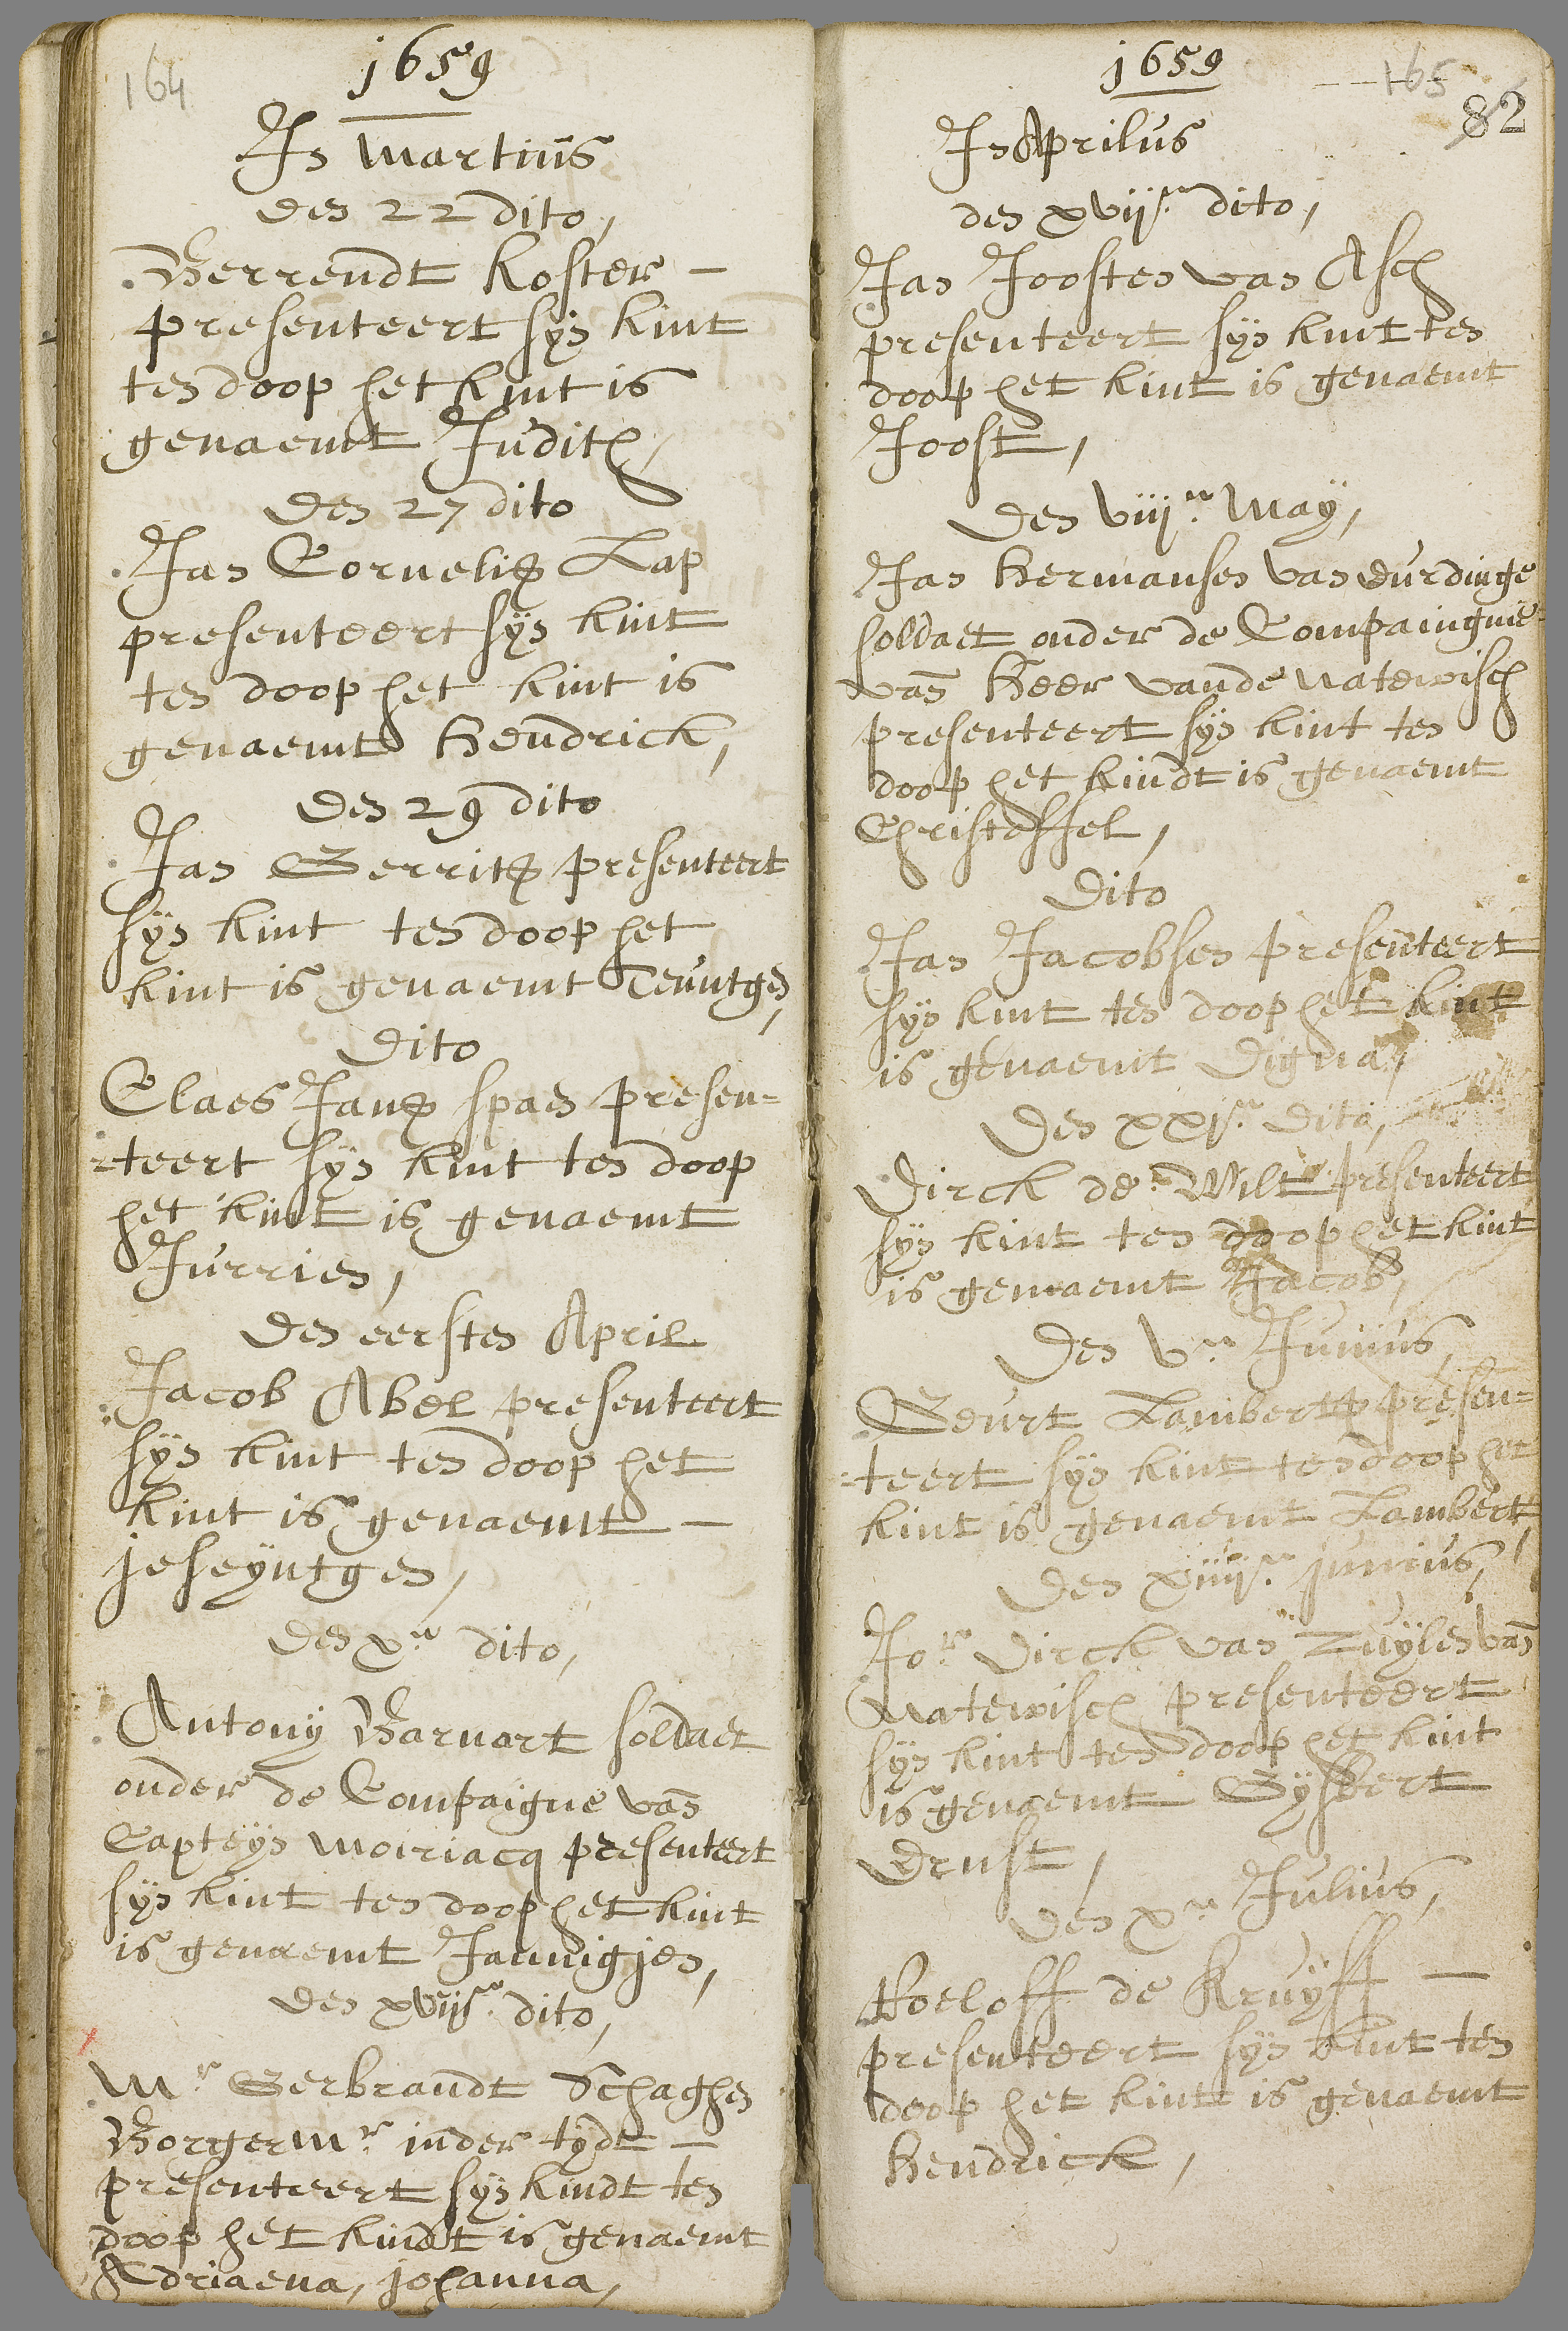 164
1659
In Martius
den 22 dito,
Berrendt Koster –
presenteert syn kint
ten doop het kint is
genaemt Judith,
den 27 dito
Jan Cornelisz Lap
presenteert sÿn kint
ten doop het kint is
genaemt Hendrick,
den 29 dito
Jan Gerritz presenteert
sÿn kint ten doop het
kint is genaemt Teuntgen,
dito
Claes Jansz spaen presen-
-teert sÿn kint ten doop
het kint is genaemt
Jurrien,
den eersten April
Jacob Abel presenteert
sÿn kint ten doop het
kint is genaemt –
jeseÿntgen,
den xen dito,
Antonÿ Barnart soldaet
onder de Compaigne van
Capteÿn Moiriacq presenteert
sÿn kint ten doop het kint
is genaemt Jannigjen,
den xvijen dito,
Mr Gerbrandt Schaghen
Borgermr inder tÿdt –
presenteert sÿn kindt ten
doop het kindt is genaemt
Adriaena, johanna,
1659
165
82
In Aprilus
den xvijen dito,
Jan Joosten van Asch
presenteert sÿn kint ten
doop het kint is genaemt
Joost,
den viijen Maÿ,
Jan Hermansen van Eurdinge
soldaet onder de Compaingnie
van Heer vande Natewisch
presenteert sÿn kint ten
doop het kindt is genaemt
Christoffel,
dito
Jan Jacobsen presenteert
sÿn kint ten doop het kint
is genaemt Digna,
den xxjen dito,
Dirck de Wilt presenteert
sÿn kint ten doop het kint
is genaemt Jacob,
den ven Junius,
Geurt Lambertz presen-
-teert sÿn kint ten doop het
kint is genaemt Lambert,
den xiiijen junius,
Jor Dirck van Zuÿlen van
Natewisch presenteert
sÿn kint ten doop het kint
is genaemt Gÿsbert
Ernst,
den xen Julius,
Roeloff de Kruÿff –
presenteert sÿn kint ten
doop het kint is genaemt
Hendrick,